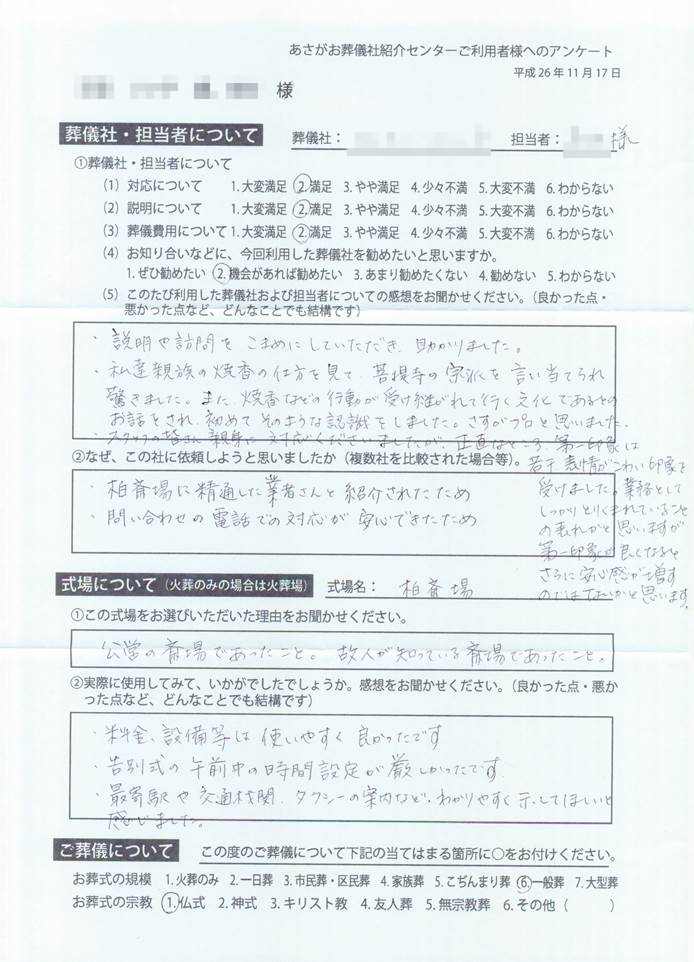 あさがお葬儀社紹介センターご利用者様へのアンケート
平成26年11月17日
様
葬儀社・担当者について 葬儀社： 担当者： 様
①葬儀社・担当者について
（1）対応について 1.大変満足 2.満足 3.やや満足 4.少々不満 5.大変不満 6.わからない
（2）説明について 1.大変満足 2.満足 3.やや満足 4.少々不満 5.大変不満 6.わからない
（3）葬儀費用について 1.大変満足 2.満足 3.やや満足 4.少々不満 5.大変不満 6.わからない
（4）お知り合いなどに、今回利用した葬儀社を勧めたいと思いますか。
1.ぜひ勧めたい 2.機会があれば勧めたい 3.あまり勧めたくない 4.勧めない 5.わからない
（5）このたび利用した葬儀社および担当者についての感想をお聞かせください。（良かった点・
悪かった点など、どんなことでも結構です）
・説明や訪問を こまめにしていただき、助かりました。
・私達親族の焼香の仕方を見て、菩提寺の宗派を言い当てられ
驚きました。また、焼香などの行動が受け継がれて行く文化であるとの
お話をされ、初めてそのような認識をしました。さすがプロと思いました。
・スタッフの皆さん親身に対応くださいましたが、正直なところ、第一印象は
若干表情がこわい印象を
受けました。業務として
しっかりとりくまれていること
の表れかと思いますが
第一印象が良くなると
さらに安心感が増す
のではないかと思います。
②なぜ、この社に依頼しようと思いましたか（複数社を比較された場合等）。
・柏斎場に精通した業者さんと紹介されたため
・問い合わせの電話での対応が安心できたため
式場について（火葬のみの場合は火葬場） 式場名： 柏斎場
①この式場をお選びいただいた理由をお聞かせください。
公営の斎場であったこと。 故人が知っている斎場であったこと。
②実際に使用してみて、いかがでしたでしょうか。感想をお聞かせください。（良かった点・悪か
った点など、どんなことでも結構です）
・料金、設備等は使いやすく良かったです
・告別式の午前中の時間設定が厳しかったです
・最寄駅や交通機関、タクシーの案内など、わかりやすく示してほしいと
感じました。
ご葬儀について この度のご葬儀について下記の当てはまる箇所に○をお付けください。
お葬式の規模 1.火葬のみ 2.一日葬 3.市民葬・区民葬 4.家族葬 5.こぢんまり葬 6.一般葬 7.大型葬
お葬式の宗教 1.仏式 2.神式 3.キリスト教 4.友人葬 5.無宗教葬 6.その他（ ）